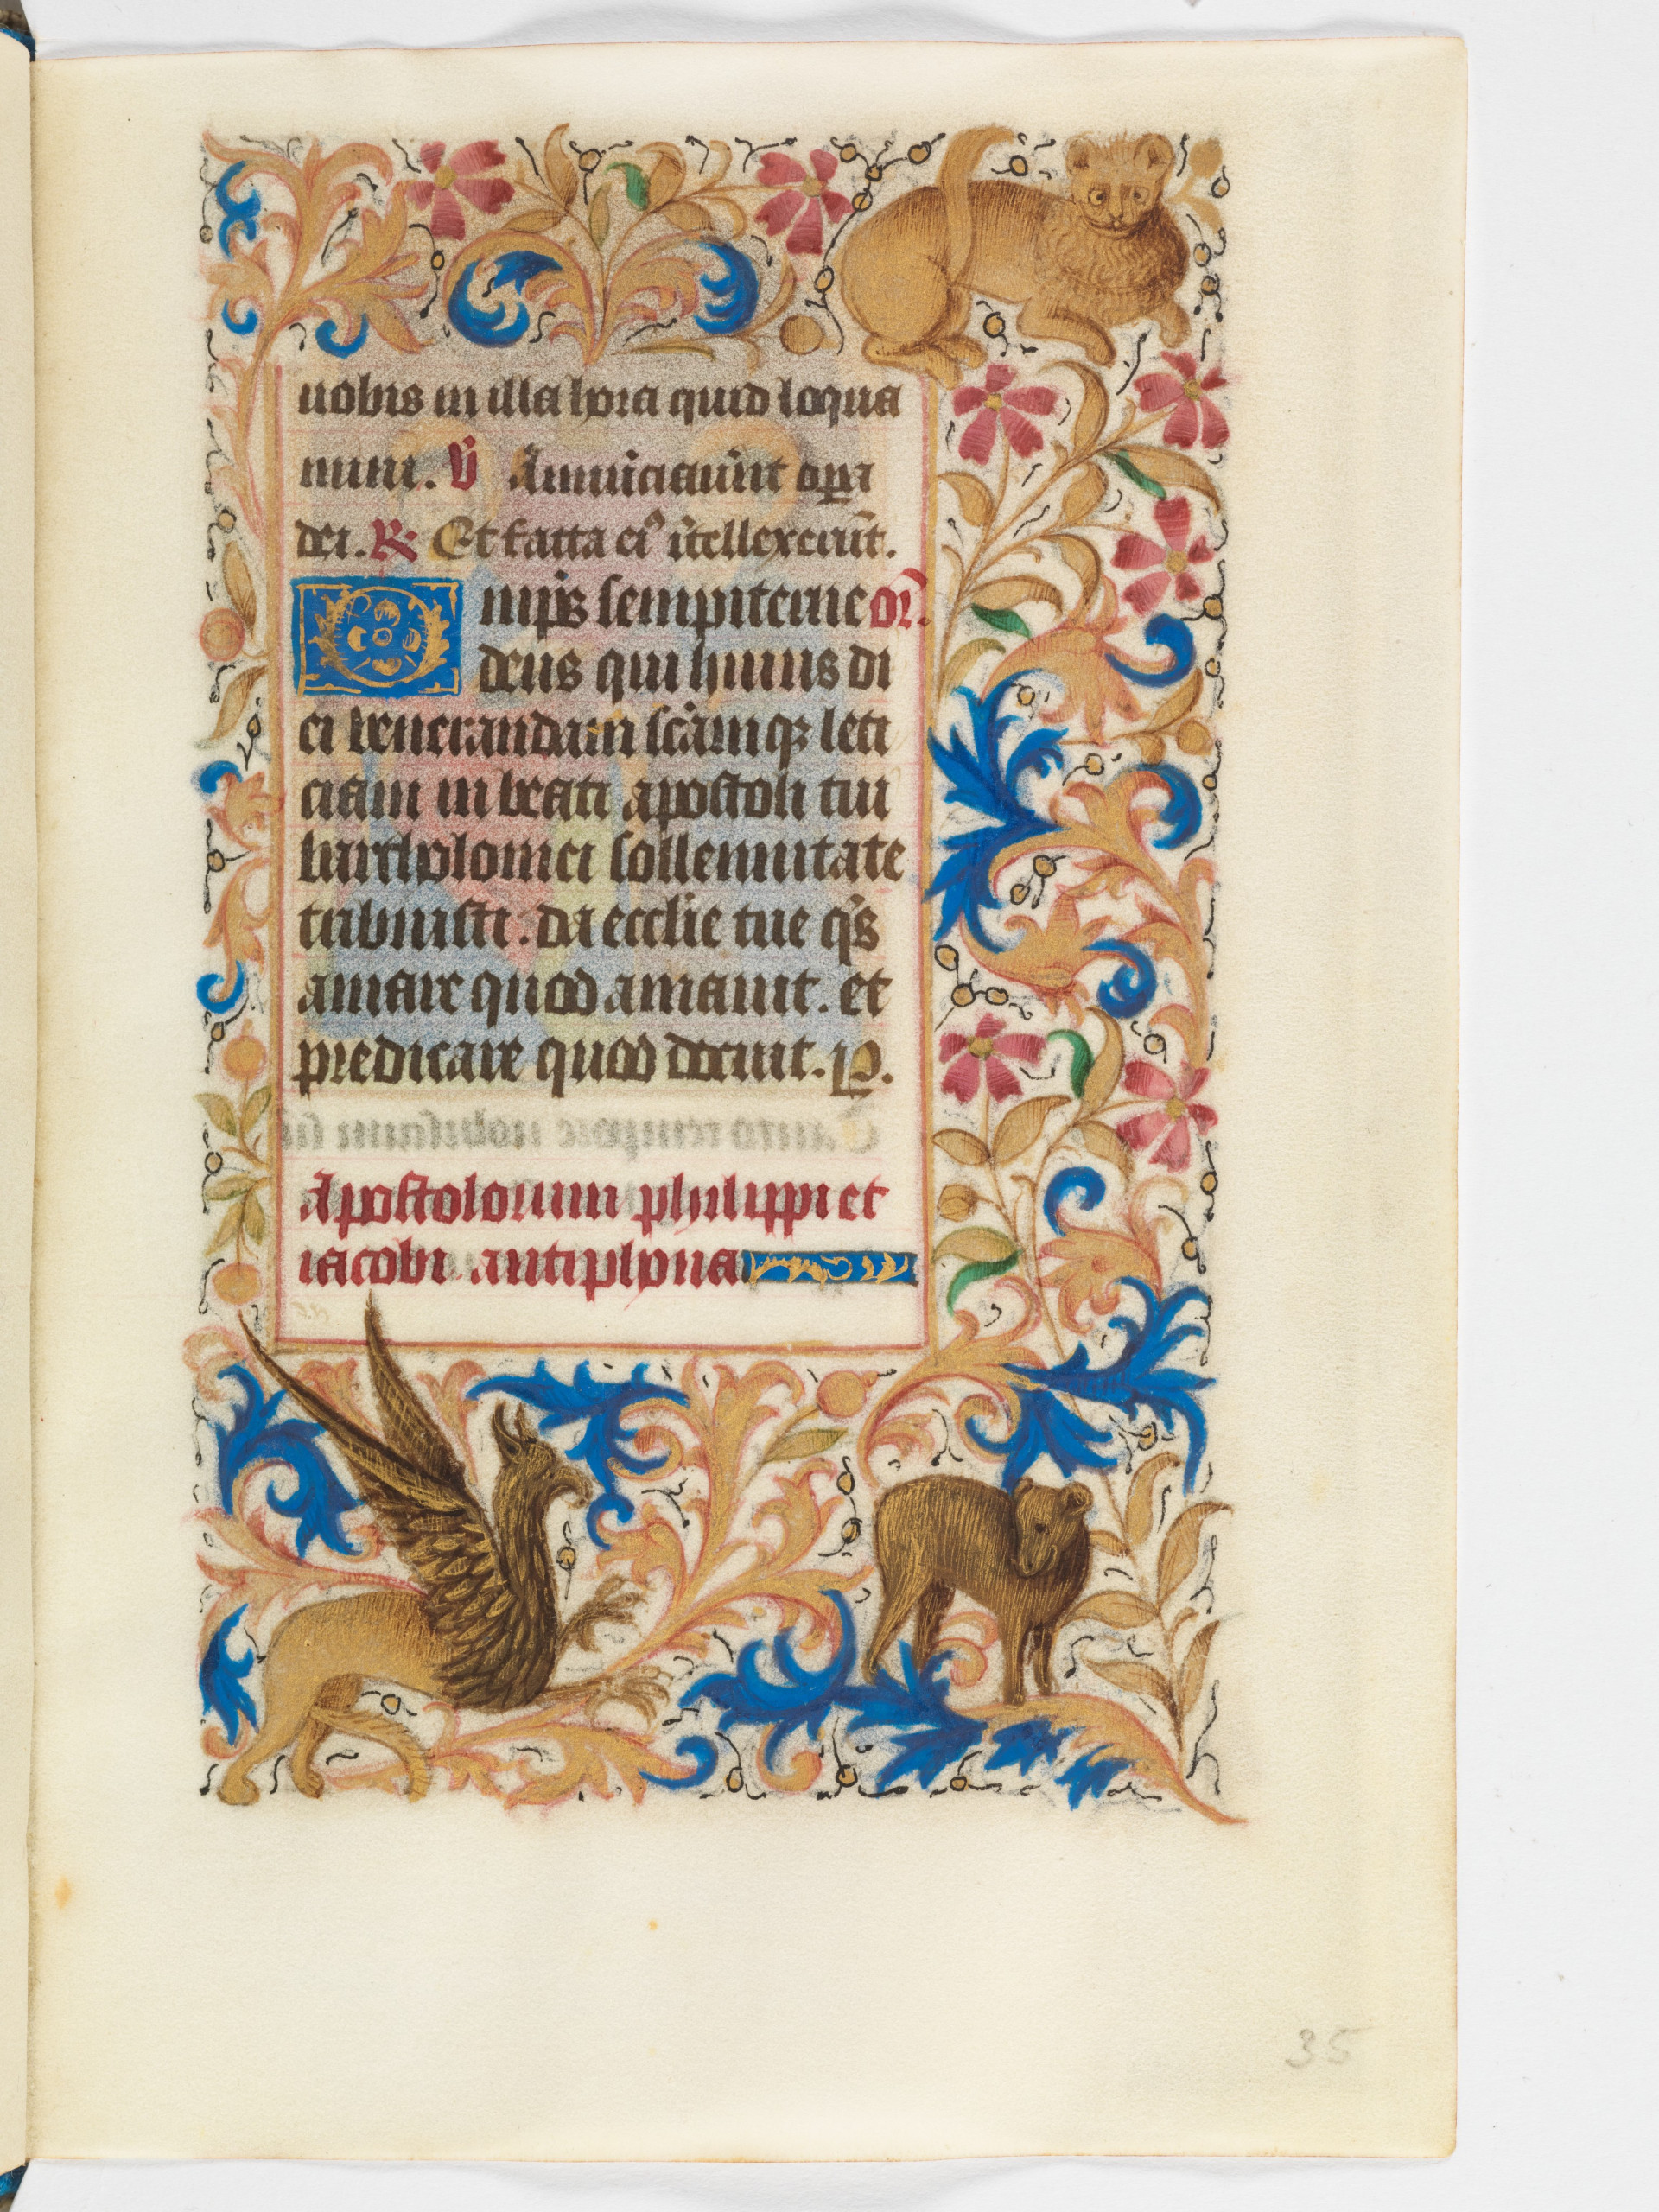 uobis in illa hora quid loqua
mini. V̄ Annu̅ciaueru̅t op̅a
dei. R̃ Et facta ei⁹ i̅tellexeru̅t.
Omp̅s sempiterne or̃.
deus qui huius di
ei venerandam sc̅amqꝫ leti
ciam in beati apostoli tui
bartholomei sollennitate
tribuisti. da eccl̅ie tue q̅s
amare quod amauit. et
predicare quod docuit. P.
Apostolorum philippi et
iacobi antiphona
35